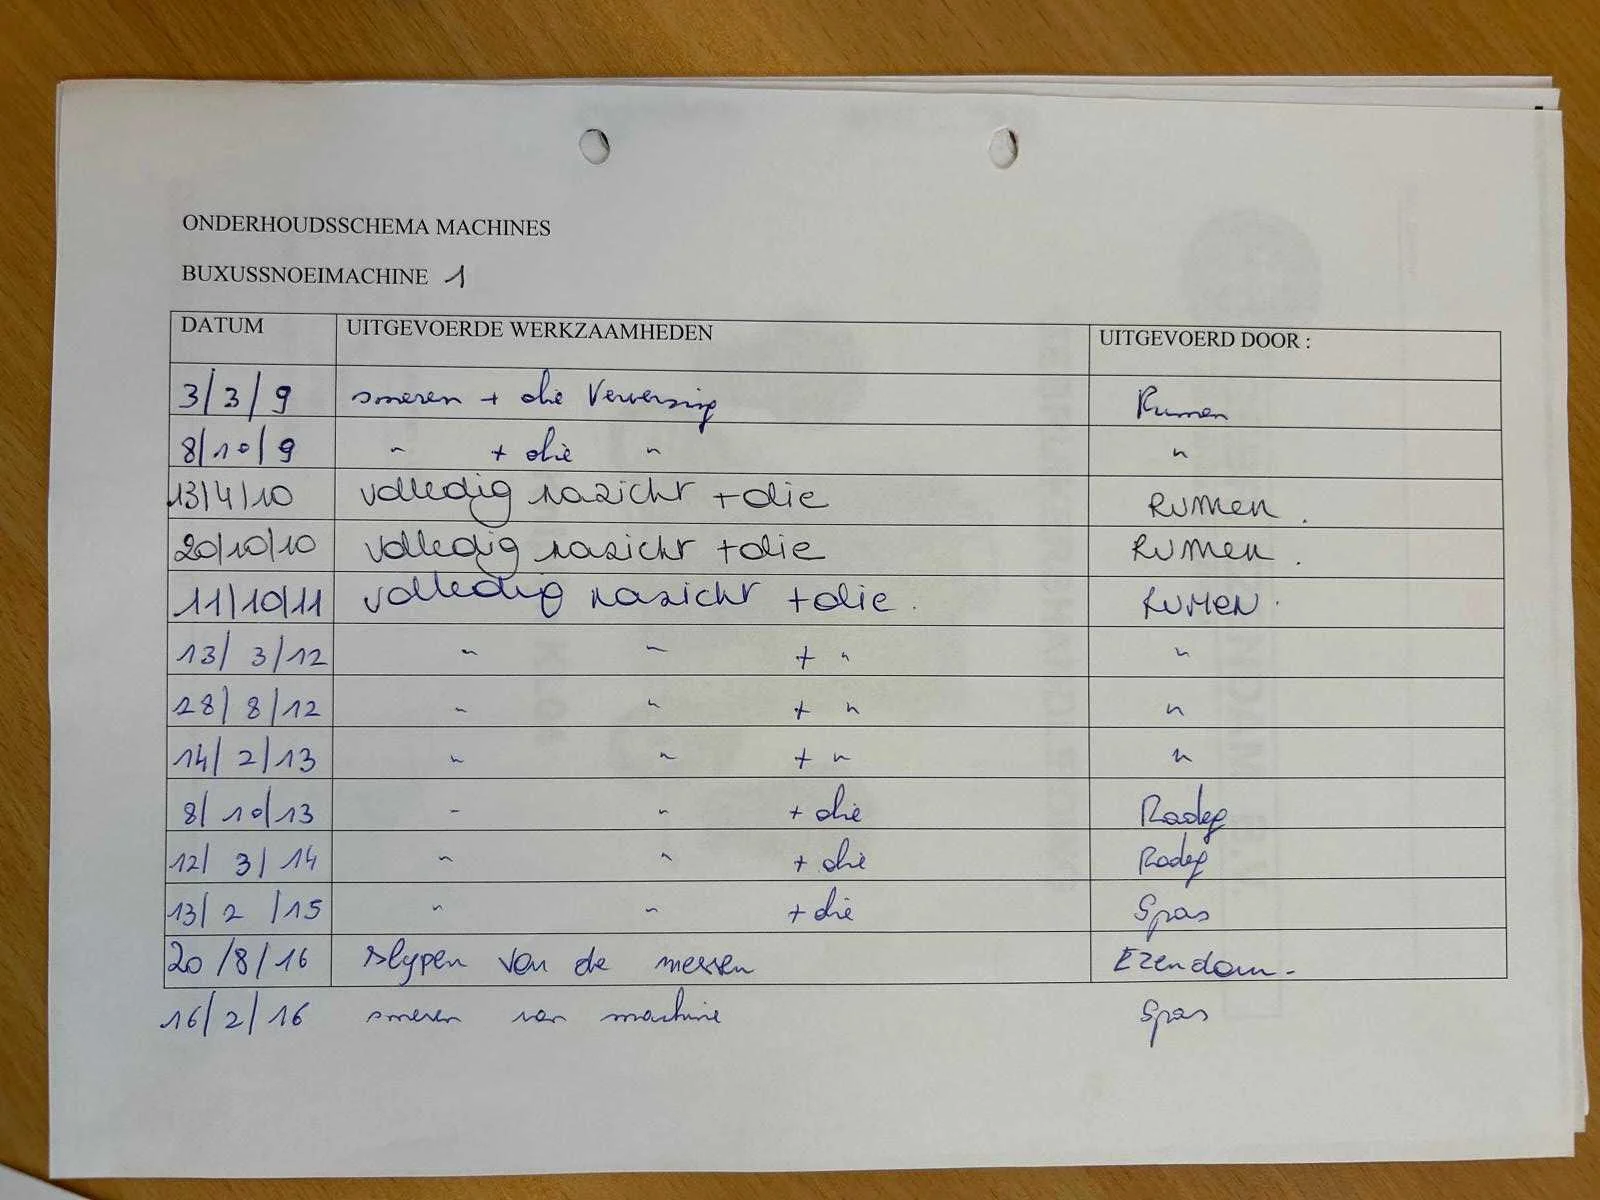 ONDERHOUDSSCHEMA MACHINES
BUXUSSNOEIMACHINE 1
DATUM UITGEVOERDE WERKZAAMHEDEN UITGEVOERD DOOR :
3/3/9 smeren + olie Verversing Rumen
8/10/9 " + olie " "
13/4/10 volledig nazicht + olie RUMEN.
20/10/10 volledig nazicht + olie RUMEN.
11/10/11 volledig nazicht + olie. RUMEN.
13/3/12 " " + " "
28/8/12 " " + " "
14/2/13 " " + " "
8/10/13 " " + olie Radeg
12/3/14 " " + olie Radeg
13/2/15 " " + olie Spas
20/8/16 slypen van de messen Ezendam-
16/2/16 smeren van machine Spas